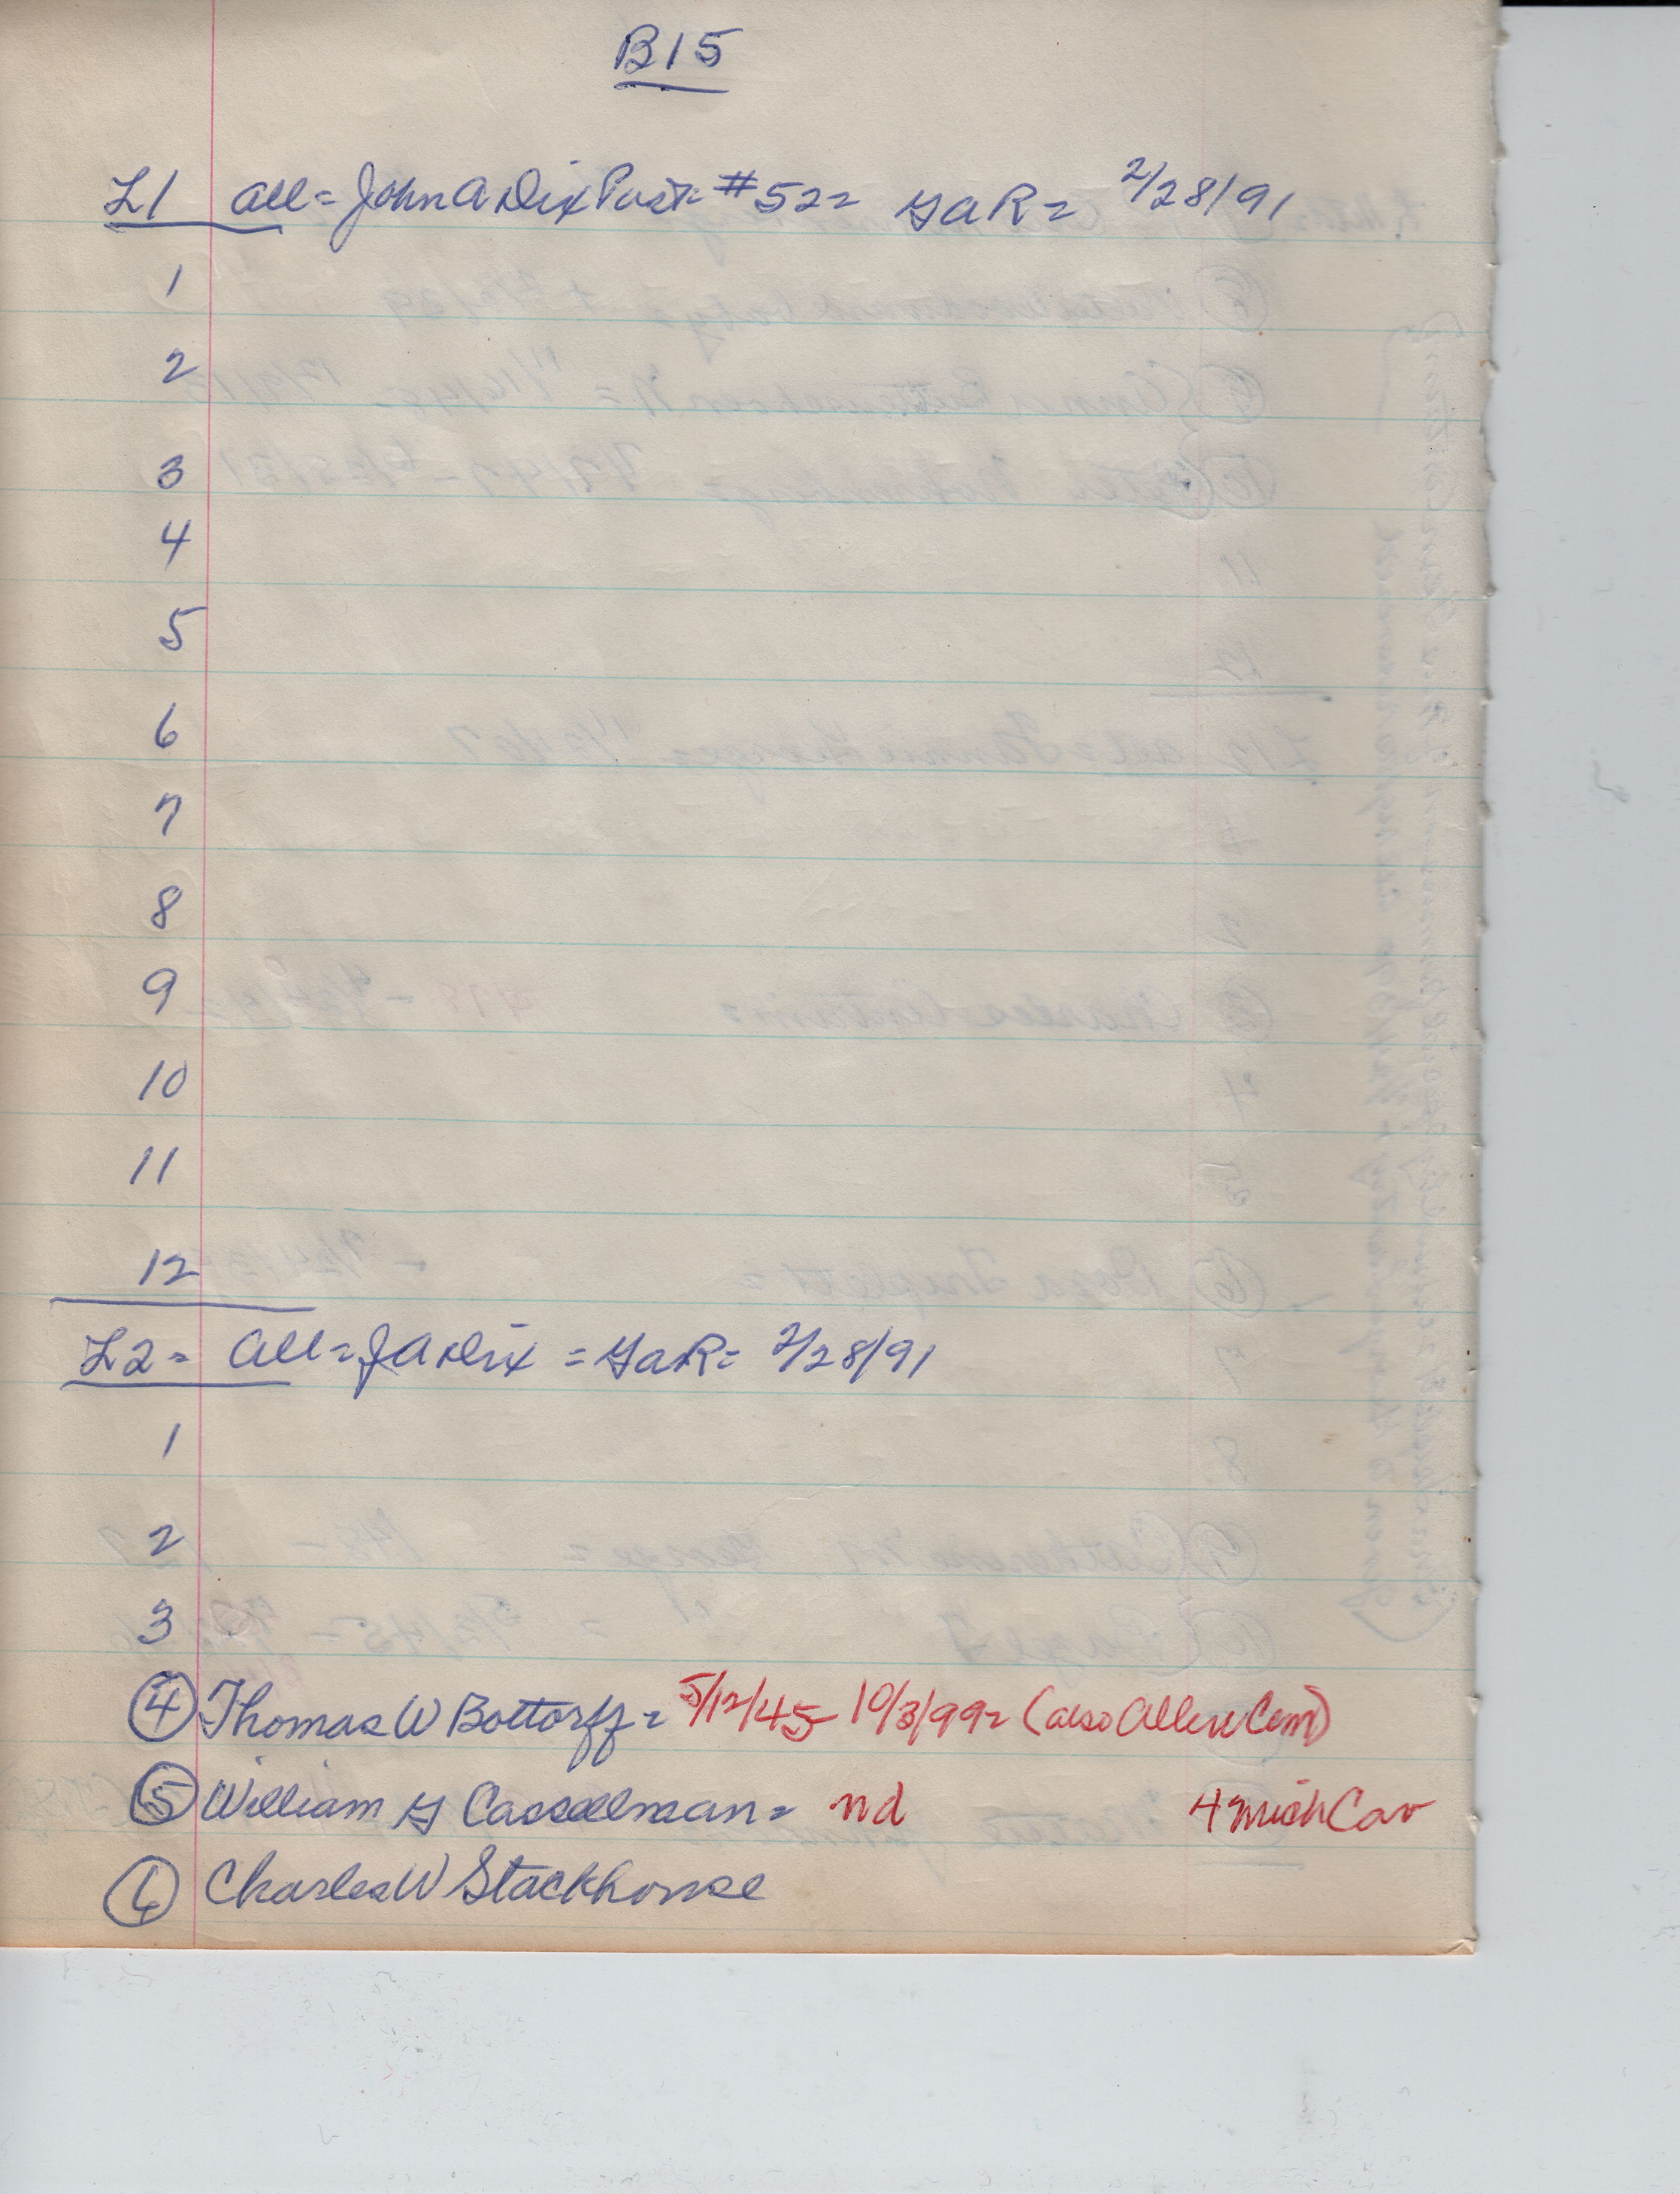 B15
L1 all = John A Dix Post = #52 = GAR = 2/28/91
1
2
3
4
5
6
7
8
9
10
11
12
L2 = all = J A Dix = GAR = 2/28/91
1
2
3
4 Thomas W Bottorff = 5/12/45 - 10/3/99 = (also Allen Cem)
5 William G Casselman = nd 4 Mich Cav
6 Charles W Stackhouse